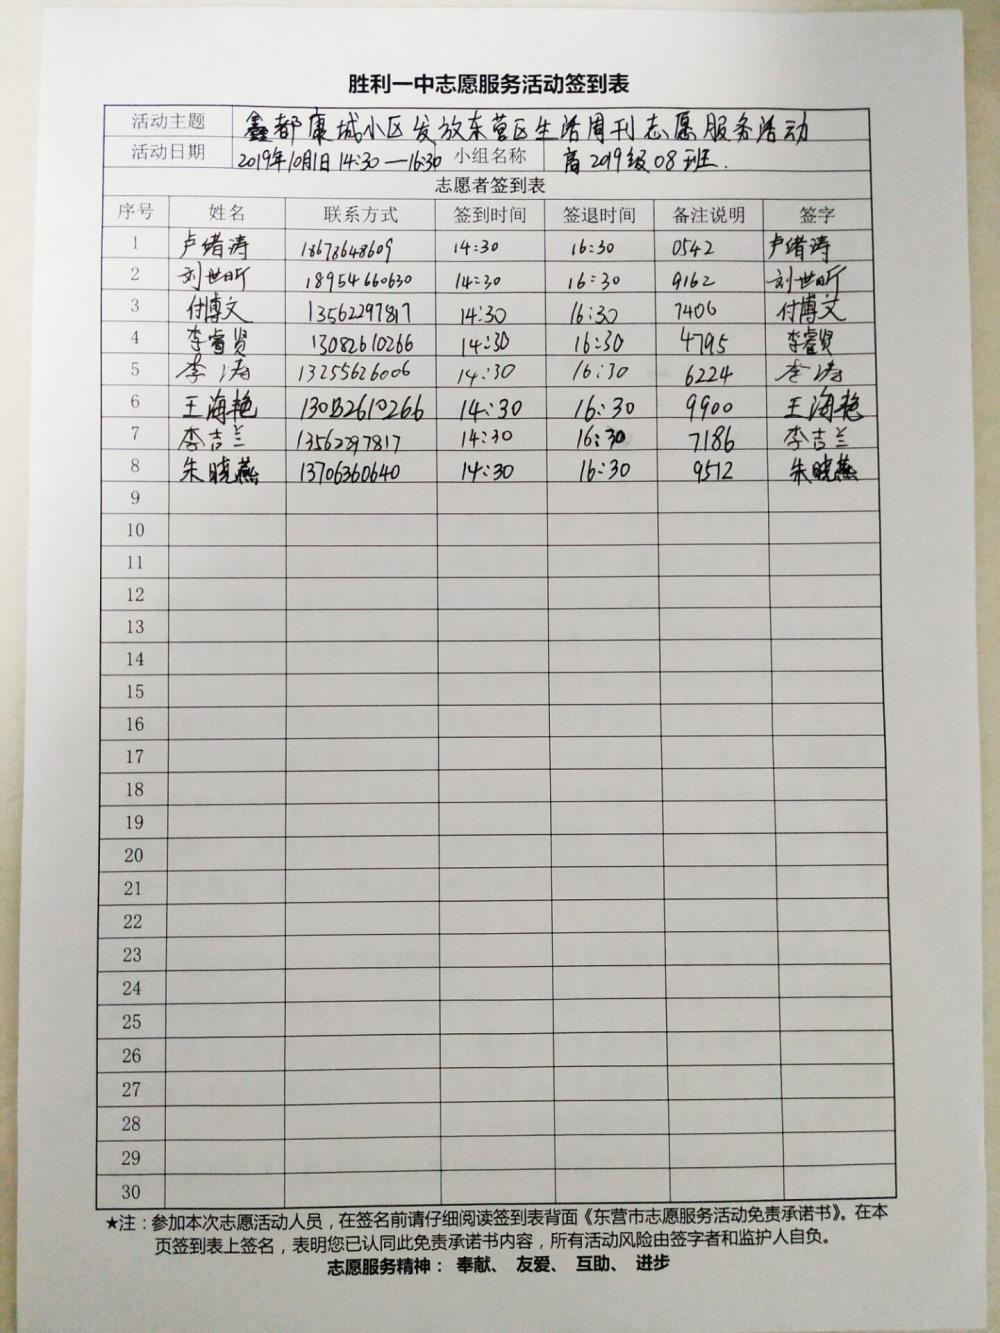 胜利一中志愿服务活动签到表
活动主题 鑫都康城小区发放东营区生活周刊志愿服务活动
活动日期 2019年10月1日 14:30—16:30 小组名称 高2019级08班.
志愿者签到表
序号 姓名 联系方式 签到时间 签退时间 备注说明 签字
1 卢绪涛 18678648609 14:30 16:30 0542 卢绪涛
2 刘世昕 18954660630 14:30 16:30 9162 刘世昕
3 付博文 13562297817 14:30 16:30 7406 付博文
4 李睿贤 13082610266 14:30 16:30 4795 李睿贤
5 李涛 13255626006 14:30 16:30 6224 李涛
6 王海艳 13082610266 14:30 16:30 9900 王海艳
7 李吉兰 13562297817 14:30 16:30 7186 李吉兰
8 朱晓燕 13706360640 14:30 16:30 9512 朱晓燕
9
10
11
12
13
14
15
16
17
18
19
20
21
22
23
24
25
26
27
28
29
30
★注：参加本次志愿活动人员，在签名前请仔细阅读签到表背面《东营市志愿服务活动免责承诺书》。在本
页签到表上签名，表明您已认同此免责承诺书内容，所有活动风险由签字者和监护人自负。
志愿服务精神： 奉献、 友爱、 互助、 进步